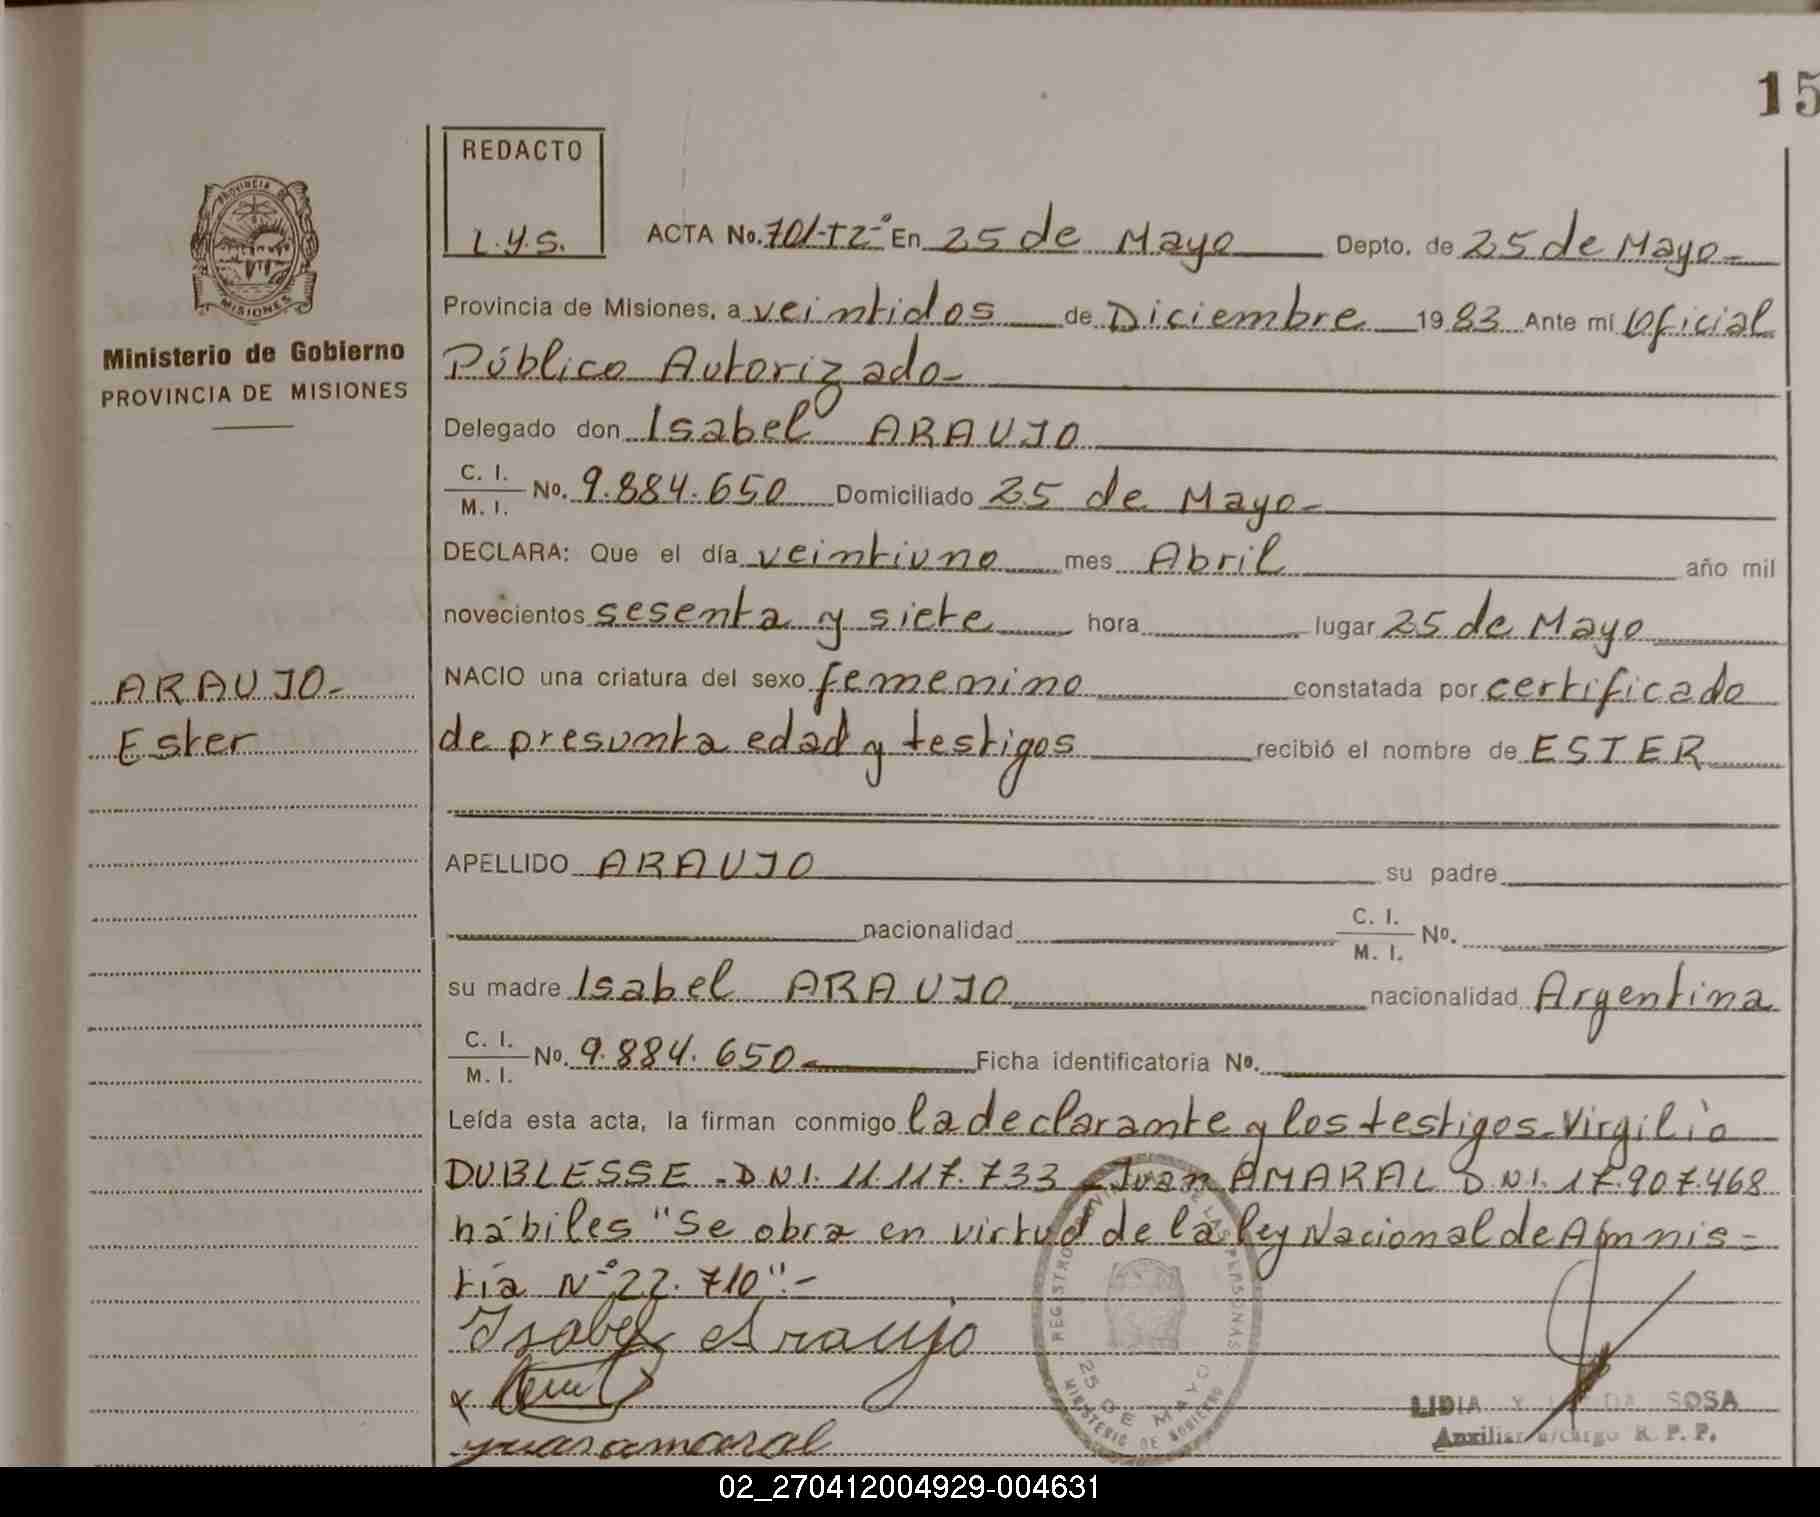 15
REDACTO
L.Y.S.
PROVINCIA DE
MISIONES
Ministerio de Gobierno
PROVINCIA DE MISIONES
ACTA No. 701-T2º En 25 de Mayo Depto. de 25 de Mayo-
Provincia de Misiones, a veintidos de Diciembre 1983 Ante mí Oficial
Público Autorizado-
Delegado don Isabel ARAUJO
C. I.
M. I. No. 9.884.650 Domiciliado 25 de Mayo-
DECLARA: Que el día veintiuno mes Abril año mil
novecientos sesenta y siete hora lugar 25 de Mayo
ARAUJO-
NACIO una criatura del sexo femenino constatada por certificado
Ester
de presunta edad y testigos recibió el nombre de ESTER
APELLIDO ARAUJO su padre
nacionalidad C. I.
M. I. No.
su madre Isabel ARAUJO nacionalidad Argentina
C. I.
M. I. No. 9.884.650- Ficha identificatoria No.
Leída esta acta, la firman conmigo la declarante y los testigos-Virgilio
DUBLESSE-DNI. 11.117.733 -Juan AMARAL DNI. 17.907.468
hábiles "Se obra en virtud de la ley Nacional de Amnis-
tía Nº 22.710".-
Isabel Araujo
juan amaral
REGISTRO PROVINCIAL DE LAS PERSONAS
25 DE MAYO
MINISTERIO DE GOBIERNO
LIDIA Y DA SOSA
Auxiliar a/cargo R. P. P.
02_270412004929-004631